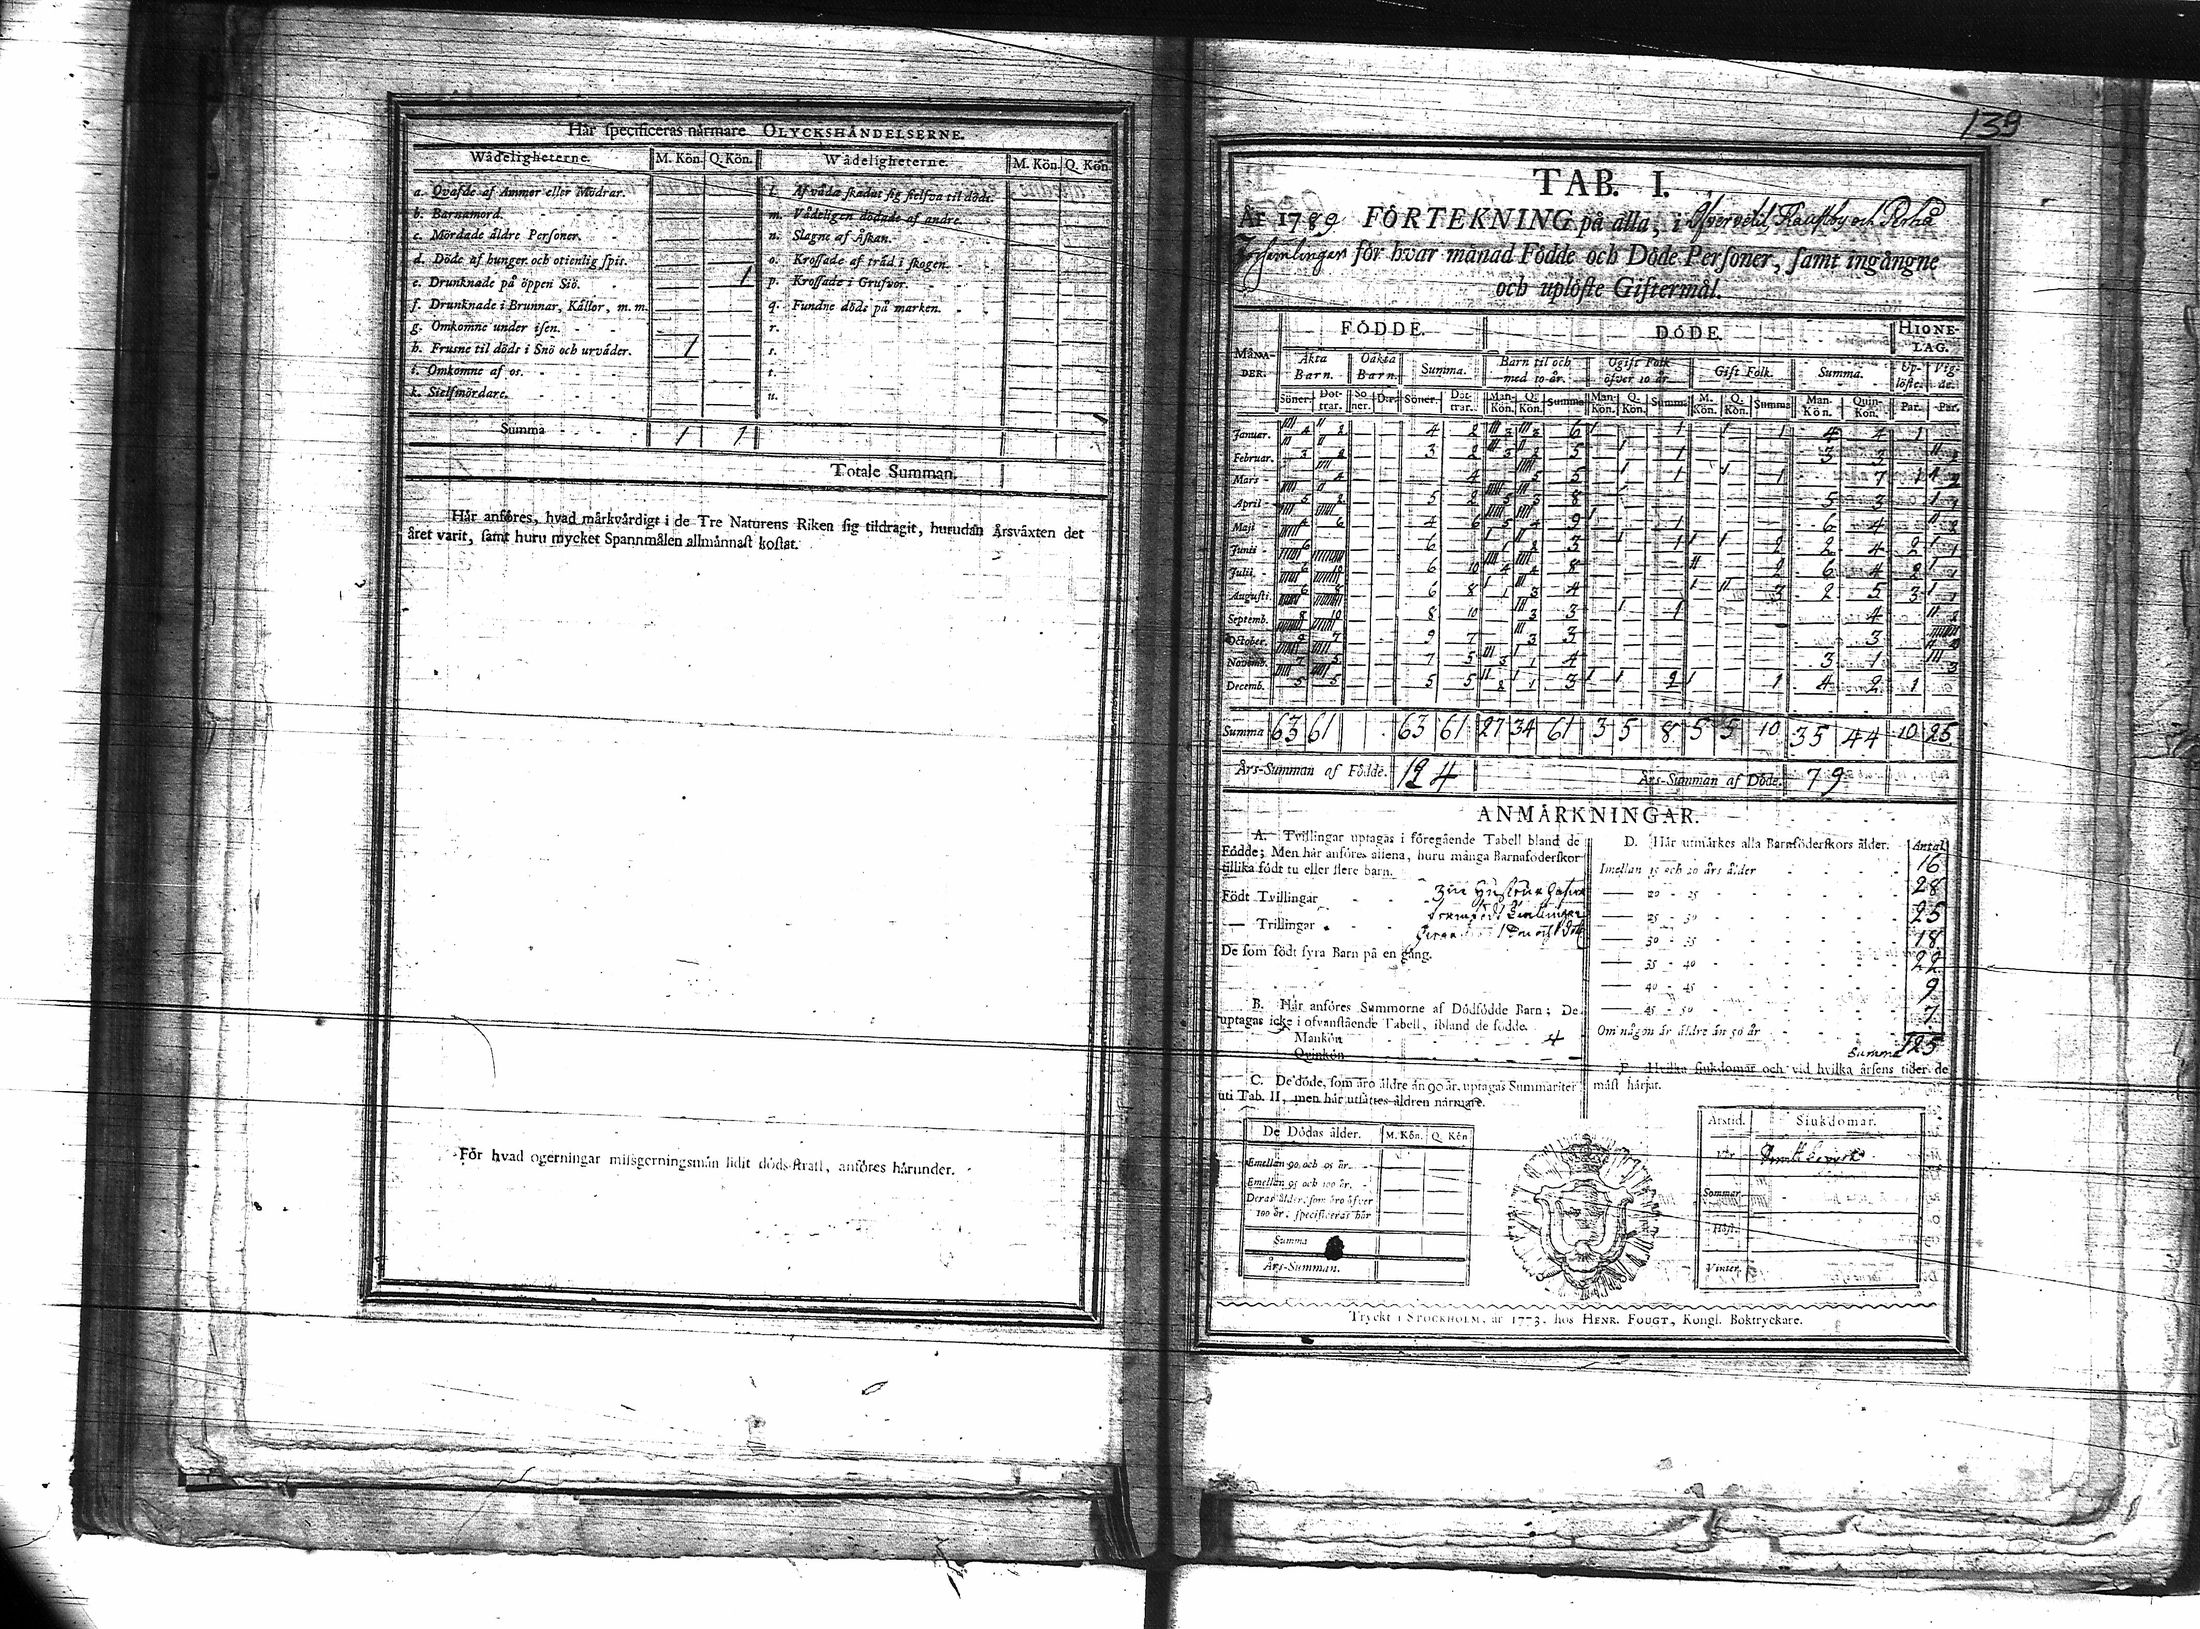 Här specificeras närmare OLYCKSHÄNDELSERNE.
Wådeligheterne. M. Kön. Q. Kön. Wådeligheterne. M. Kön. Q. Kön.
a. Qvafde af Ammor eller Mödrar. l. Af våda skadat sig sielfva til döds.
b. Barnamord. m. Vådeligen dödade af andre.
c. Mördade äldre Personer. n. Slagne af Åskan.
d. Döde af hunger och otienlig spis. o. Krossade af träd i skogen.
e. Drunknade på öppen Siö. 1 p. Krossade i Grufvor.
f. Drunknade i Brunnar, Källor, m. m. q. Fundne döde på marken.
g. Omkomne under isen. r.
h. Frusne til döds i Snö och urväder. 1 s.
i. Omkomne af os. t.
k. Sielfmördare. u.
Summa 1 1
Totale Summan.
Här anföres, hvad märkvärdigt i de Tre Naturens Riken sig tildragit, hurudan Årsväxten det
året varit, samt huru mycket Spannmålen allmännast kostat.
För hvad ogerningar missgerningsmän lidit döds-straff, anföres härunder.
139
TAB. I.
År 1789 FÖRTEKNING på alla, i Öfvervetil, Kaustby och Perho
Församlingen för hvar månad Födde och Döde Personer, samt ingångne
och uplöste Giftermål.
MÅNADER. FÖDDE. DÖDE. HIONELAG.
Äkta Barn. Oäkta Barn. Summa. Barn til och med 10 år. Ogift Folk öfver 10 år. Gift Folk. Summa. Uplöste. Vigde.
Söner. Döttrar. Söner. D:r. Söner. Döttrar. Man-Kön. Q. Kön. Summa Man-Kön. Q. Kön. Summa M. Kön. Q. Kön. Summa Man-Kön. Quin-Kön. Par. Par.
Januar. 4 2 4 2 3 3 6 1 1 1 1 4 4 1
Februar. 3 2 3 2 3 2 5 1 1 3 3 2
Mars 4 4 5 5 1 1 1 1 7 1 2
April 5 2 5 2 5 3 8 5 3 1
Maji 4 6 4 6 5 4 9 1 1 6 4 2
Junii 6 6 1 2 3 1 1 1 1 2 2 4 2 1
Julii 6 10 6 10 4 4 8 2 2 6 4 2 1
Augusti. 6 8 6 8 1 3 4 1 3 2 5 3 1
Septemb. 8 10 8 10 3 3 1 1 4 2
October. 9 7 9 7 3 3 3
Novemb. 7 5 7 5 3 1 4 3 1 3
Decemb. 5 5 5 5 2 1 3 1 1 2 1 1 4 2 1
Summa 63 61 63 61 27 34 61 3 5 8 5 5 10 35 44 10 25
Års-Summan af Födde. 124 Års-Summan af Döde. 79
ANMÄRKNINGAR.
A. Tvillingar uptagas i föregående Tabell bland de
Födde; Men här anföres allena, huru många Barnaföderskor
tillika födt tu eller flere barn.
Födt Tvillingar
— Trillingar
De som födt fyra Barn på en gång.
B. Här anföres Summorne af Dödfödde Barn; De
uptagas icke i ofvanstående Tabell, ibland de födde.
Mankön 4
Qvinkön —
C. De döde, som äro äldre än 90 år, uptagas Summariter
uti Tab. II, men här utsättes åldren närmare.
De Dödas ålder. M. Kön. Q. Kön
Emellan 90 och 95 år.
Emellan 95 och 100 år.
Deras ålder, som äro öfver
100 år, specificeras här
Summa
Års-Summan.
D. Här utmärkes alla Barnföderskors ålder. Antal
Imellan 15 och 20 års ålder 16
— 20 - 25 28
— 25 - 30 25
— 30 - 35 18
— 35 - 40 22
— 40 - 45 9
— 45 - 50 7
Om någon är äldre än 50 år
Summa 125
E. Hvilka siukdomar och vid hvilka årsens tider de
mäst härjat.
Årstid. Siukdomar.
Vår
Sommar
Höst.
Vinter.
Tryckt i STOCKHOLM, år 1773, hos HENR. FOUGT, Kongl. Boktryckare.